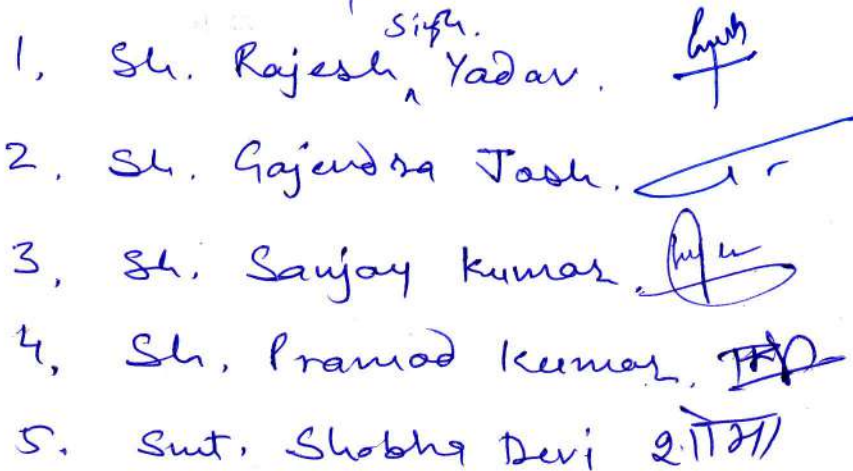 1. Sh. Rajesh Singh. Yadav.
2. Sh. Gajendra Josh.
3. Sh. Sanjay Kumar.
4. Sh. Pramod Kumar.
5. Smt. Shobha Devi शोभा